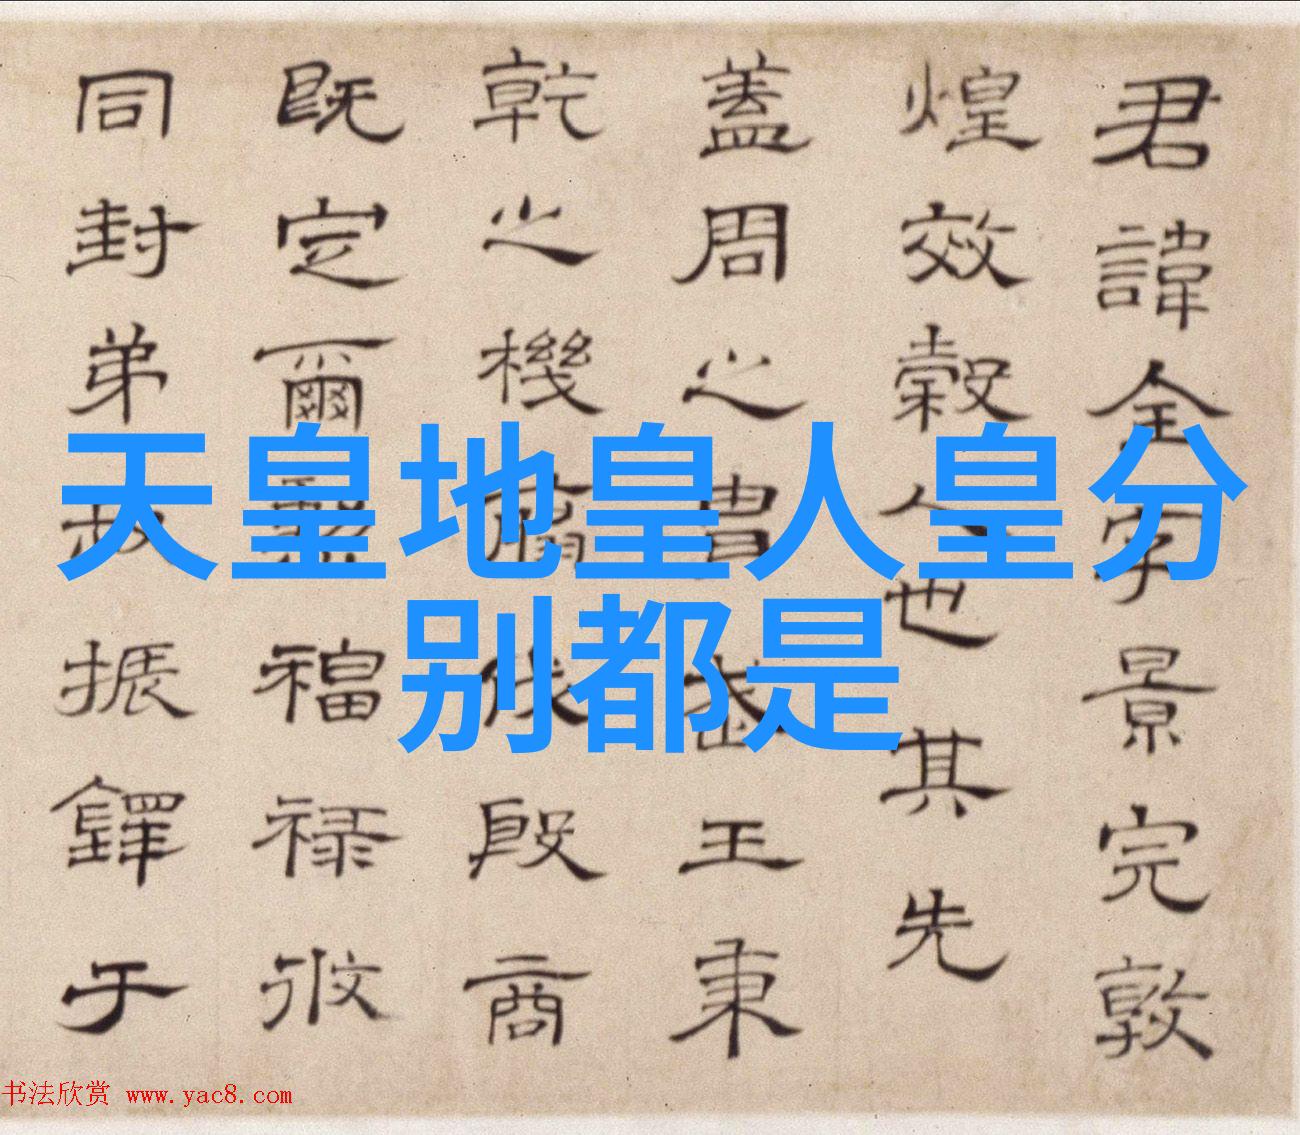 君諱全字景完敦
煌效穀人也其先
蓋周之胄武王秉
乾之機翦伐殷商
既定爾勳福禄攸
同封弟叔振鐸于
天皇地皇人皇分
别都是
书法欣赏 www.yac8.com